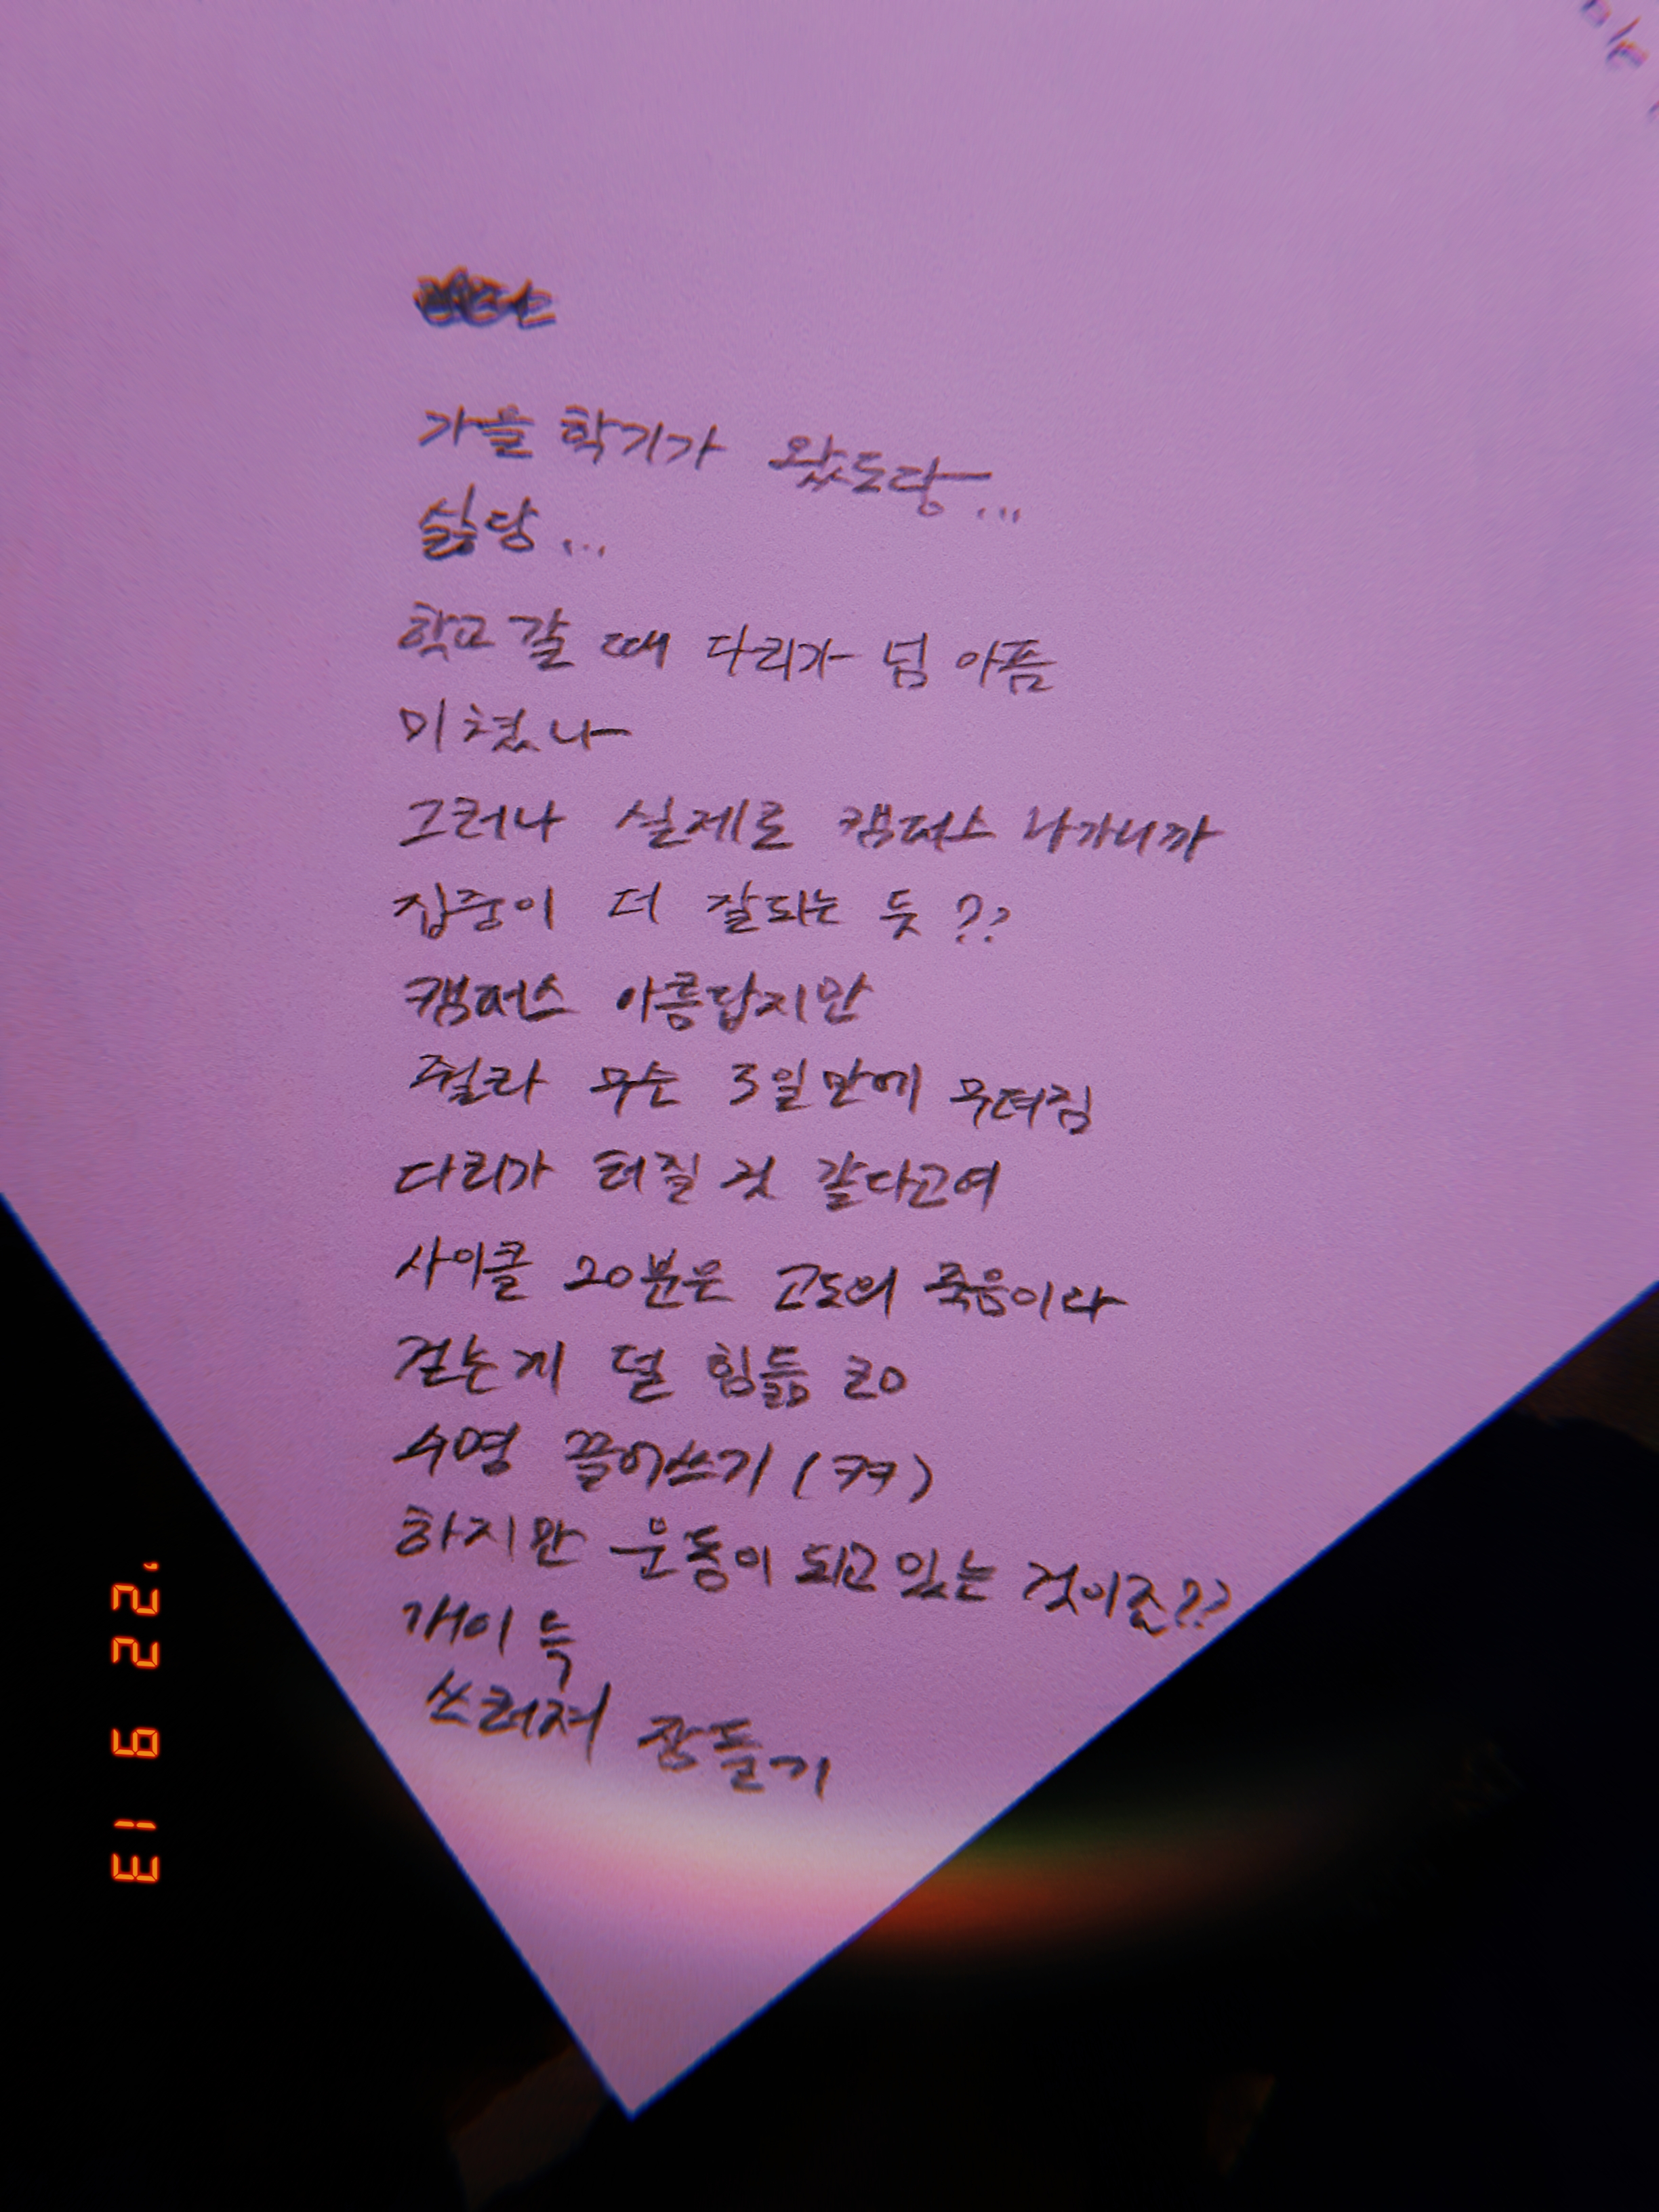 가을 학기가 왔도당...
싫당...
학교 갈 때 다리가 넘 아픔
미쳤나
그러나 실제로 캠퍼스 나가니까
집중이 더 잘되는 듯??
캠퍼스 아름답지만
무슨 3일만에 무뎌짐
다리가 터질 것 같다고여
사이클 20분은 고도의 죽음이라
걷는게 덜 힘듦
수명 끌어쓰기 (ㅋㅋ)
하지만 운동이 되고 있는 것이죤??
개이득
쓰러져 잠들기
'22 9 13